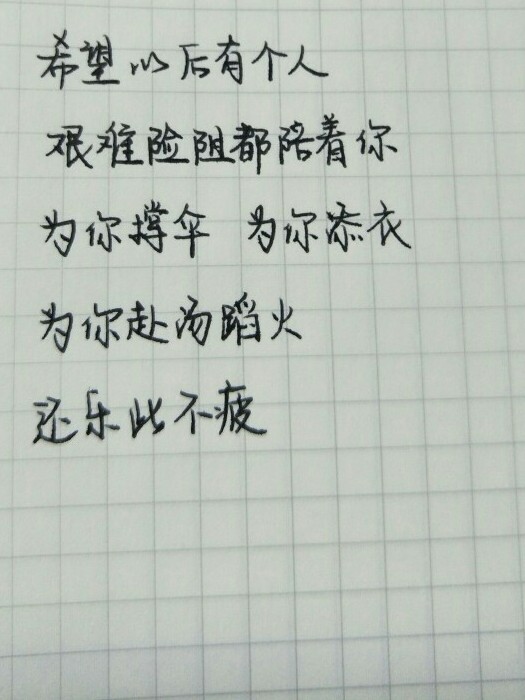 希望以后有个人
艰难险阻都陪着你
为你撑伞 为你添衣
为你赴汤蹈火
还乐此不疲